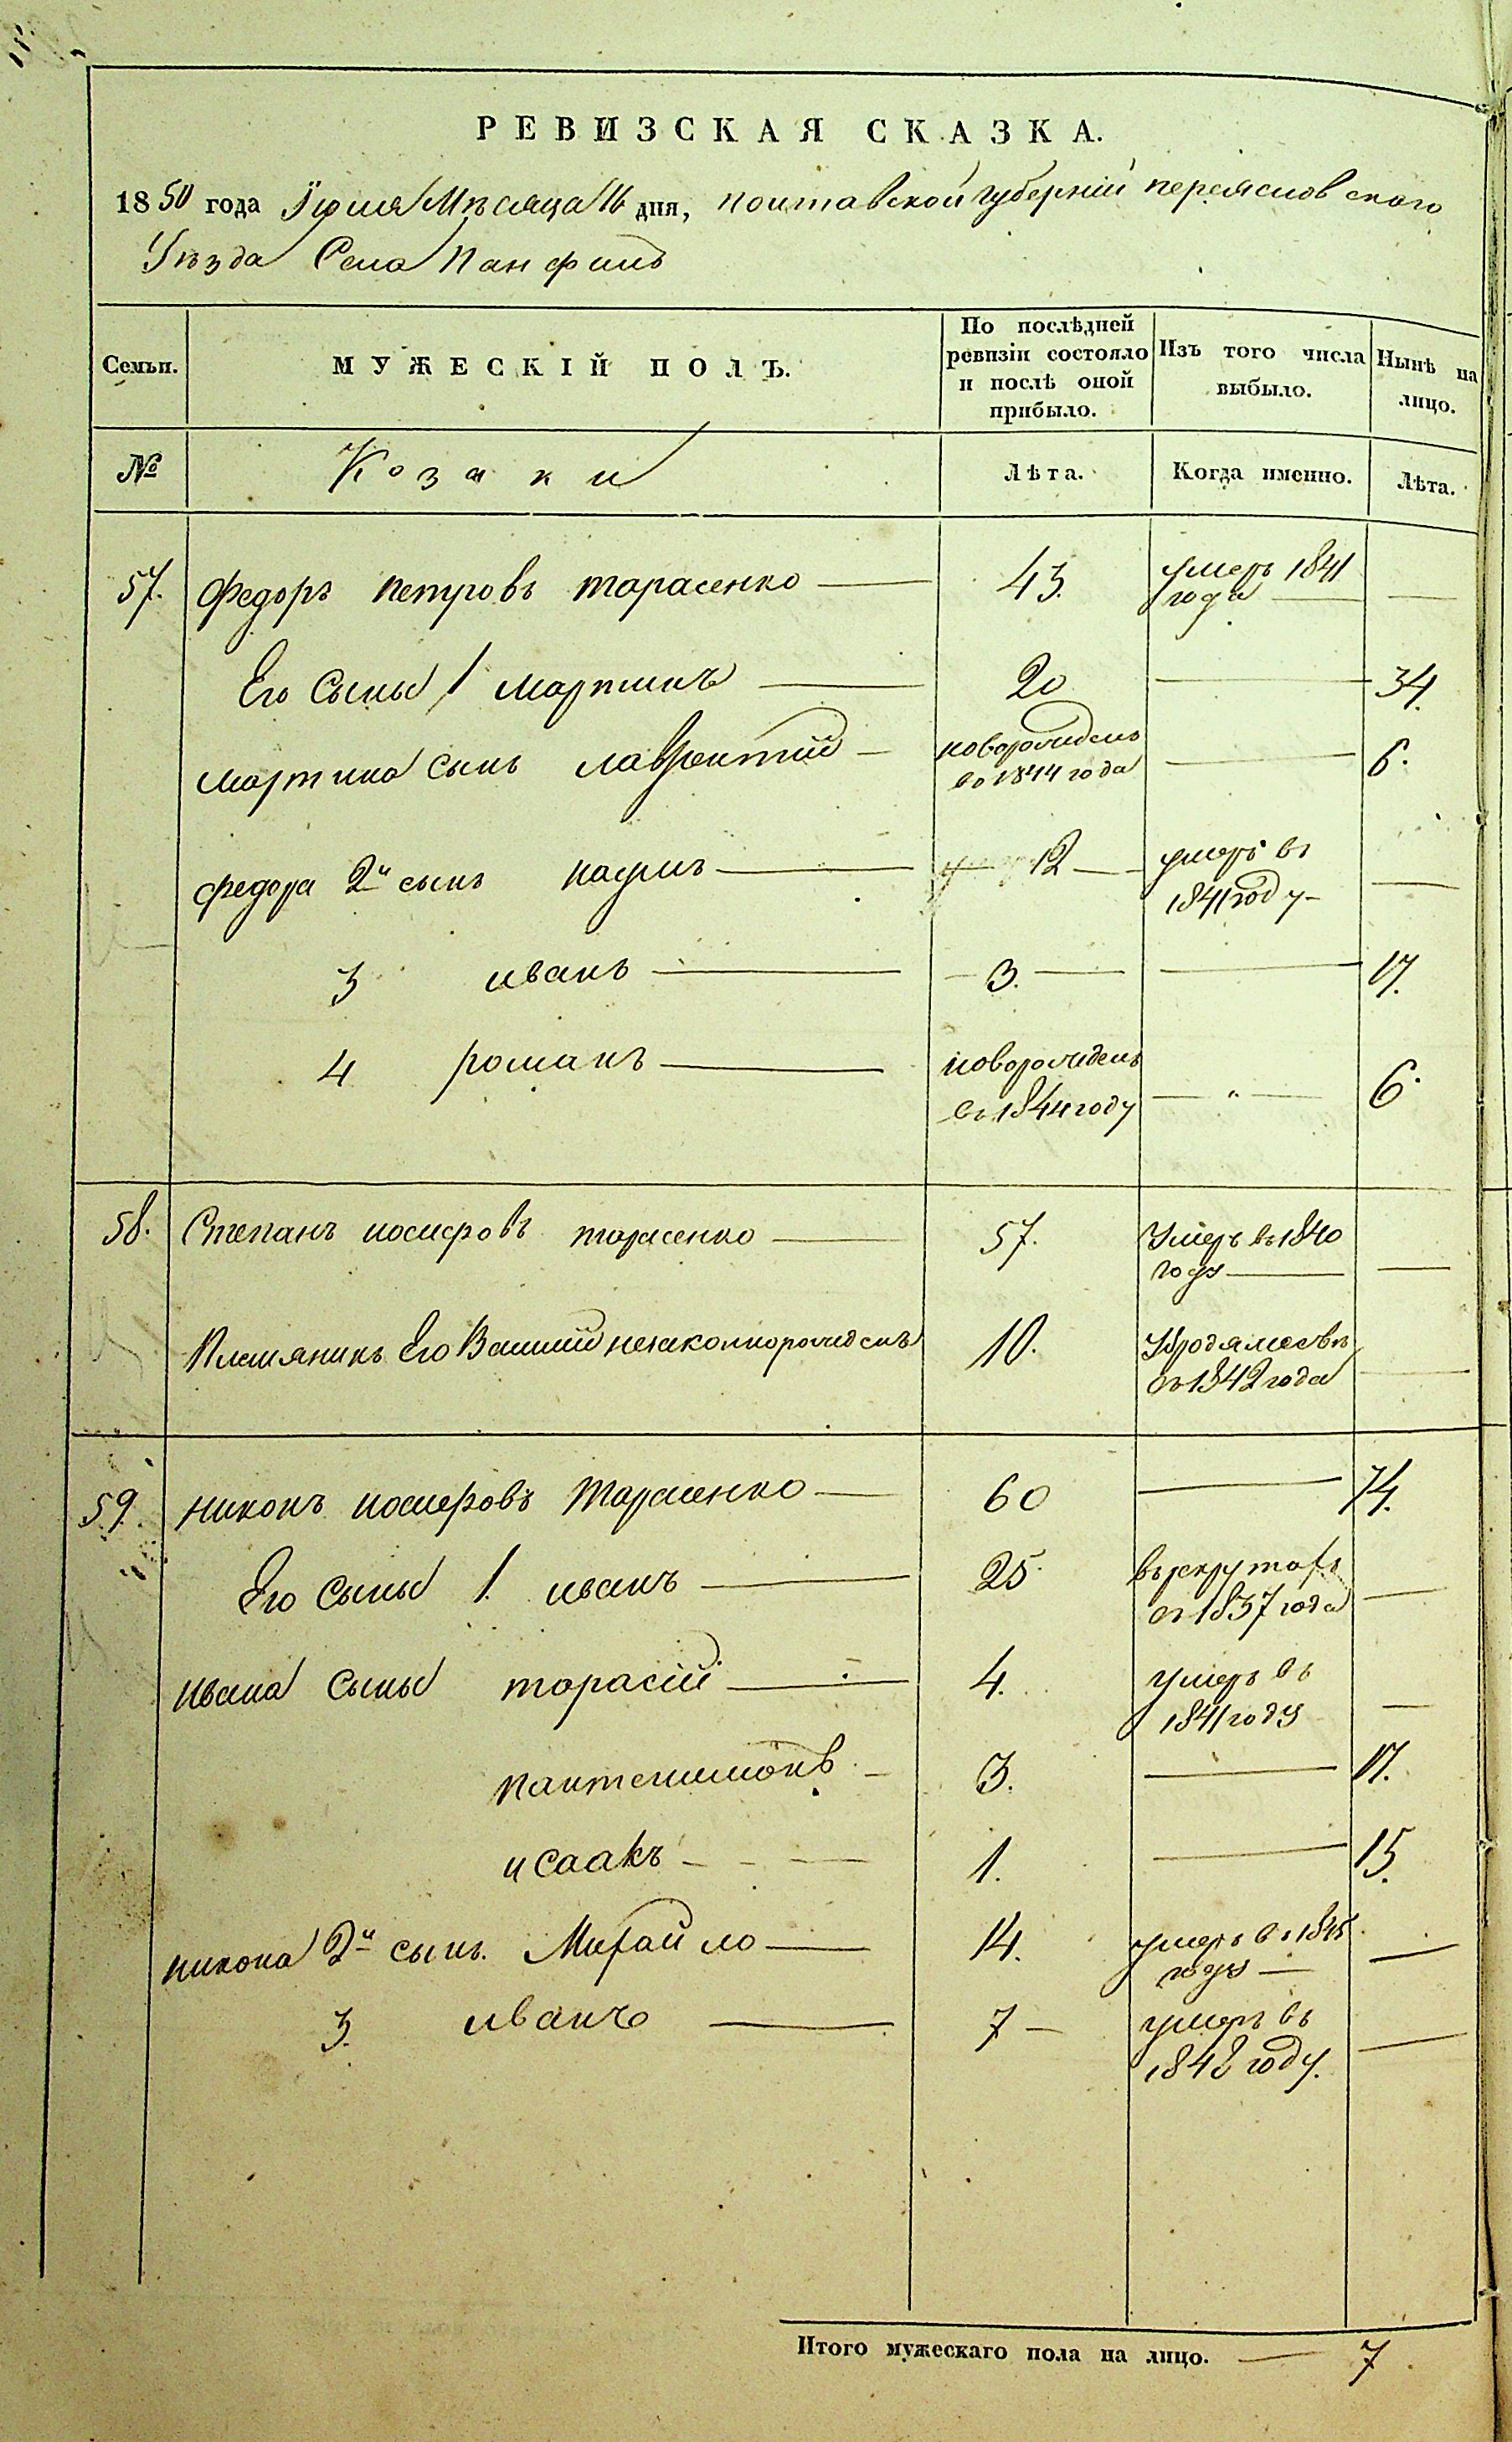 РЕВИЗСКАЯ СКАЗКА.
1850 года Iюня Мѣсяца 16 дня, полтавской губернiи переяслов ского
Уѣзда Села Панфилъ
Семьи.
МУЖЕСКІЙ ПОЛЪ.
По послѣдней ревизіи состояло и послѣ оной прибыло.
Изъ того числа выбыло.
Нынѣ на лицо.
№
Козаки
Лѣта.
Когда именно.
Лѣта.
57. Федоръ петровъ тарасенко — 43. умеръ 1841
года —
Его Сыны 1 мартинъ — 20 — 34.
мартина сынъ лаврентiй — новорожденъ
во 1844 года — 6.
федора 2й сынъ — 12 — умеръ въ
1841 году —
3 иванъ — 3. — 17.
4 романъ — новорожденъ
въ 1844 году — 6.
58. Степанъ иосифовъ тарасенко — 57. Умеръ въ 1840
году —
Племяникъ Его Василiй незаконнорожденъ 10.
съ 1842 года —
59. никонъ иосифовъ тарасенко — 60 — 74.
Его Сыны 1. иванъ — 25. въ рекрутахъ
съ 1837 года —
ивана Сыны тарасiй — 4. умеръ въ
1841 году —
пантелимонъ — 3. — 17.
исаакъ — 1. — 15.
никона 2й сынъ. Михайло — 14. умеръ въ 1845
году —
3. иванъ — 7 — умеръ въ
1842 году. —
Итого мужескаго пола на лицо. — 7